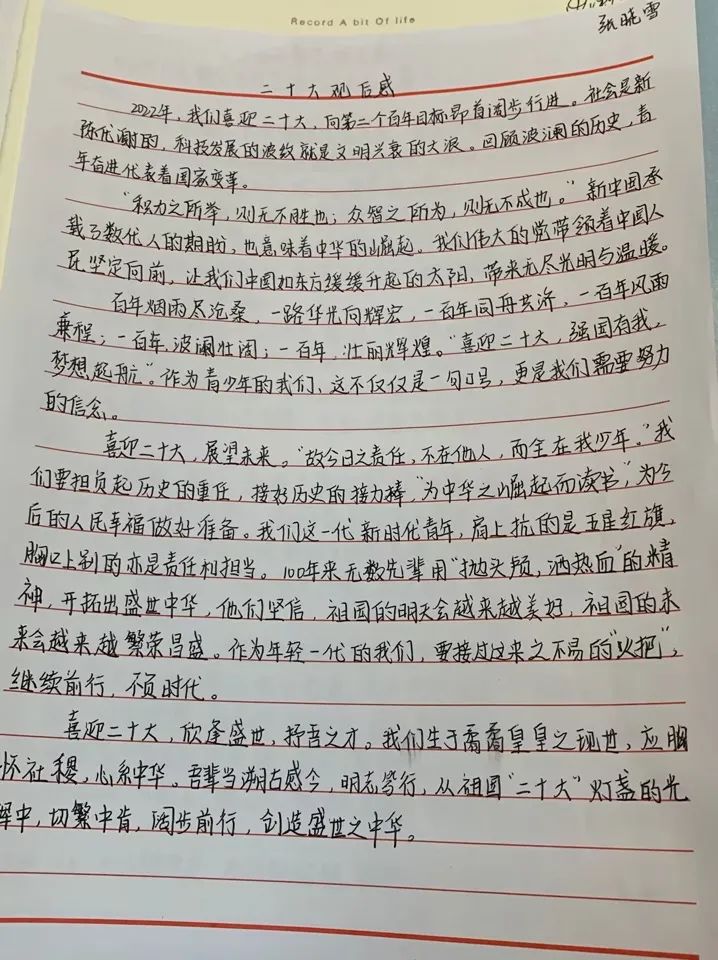 Record A bit Of life
张晓雪
二十大观后感
2022年，我们喜迎二十大，向第二个百年目标昂首阔步行进。社会是新
陈代谢的，科技发展的波纹就是文明兴衰的大浪。回顾波澜的历史，青
年奋进代表着国家变革。
“积力之所举，则无不胜也；众智之所为，则无不成也。”新中国承
载了数代人的期盼，也意味着中华的崛起。我们伟大的党带领着中国人
民坚定向前，让我们中国如东方缓缓升起的太阳，带来无尽光明与温暖。
百年烟雨尽沧桑，一路华光向辉宏，一百年同舟共济，一百年风雨
兼程；一百年，波澜壮阔；一百年，壮丽辉煌。“喜迎二十大，强国有我，
梦想起航”。作为青少年的我们，这不仅仅是一句口号，更是我们需要努力
的信念。
喜迎二十大，展望未来。“故今日之责任，不在他人，而全在我少年。”我
们要担负起历史的重任，接好历史的接力棒，“为中华之崛起而读书”，为今
后的人民幸福做好准备。我们这一代新时代青年，肩上抗的是五星红旗，
胸口上别的亦是责任和担当。100年来无数先辈用“抛头颅，洒热血”的精
神，开拓出盛世中华，他们坚信，祖国的明天会越来越美好，祖国的未
来会越来越繁荣昌盛。作为年轻一代的我们，要接过过来之不易的“火把”，
继续前行，不负时代。
喜迎二十大，欣逢盛世，抒吾之才。我们生于矞矞皇皇之现世，应胸
怀社稷，心系中华。吾辈当溯古感今，明志笃行，从祖国“二十大”灯盏的光
辉中，切繁中肯，阔步前行，创造盛世之中华。